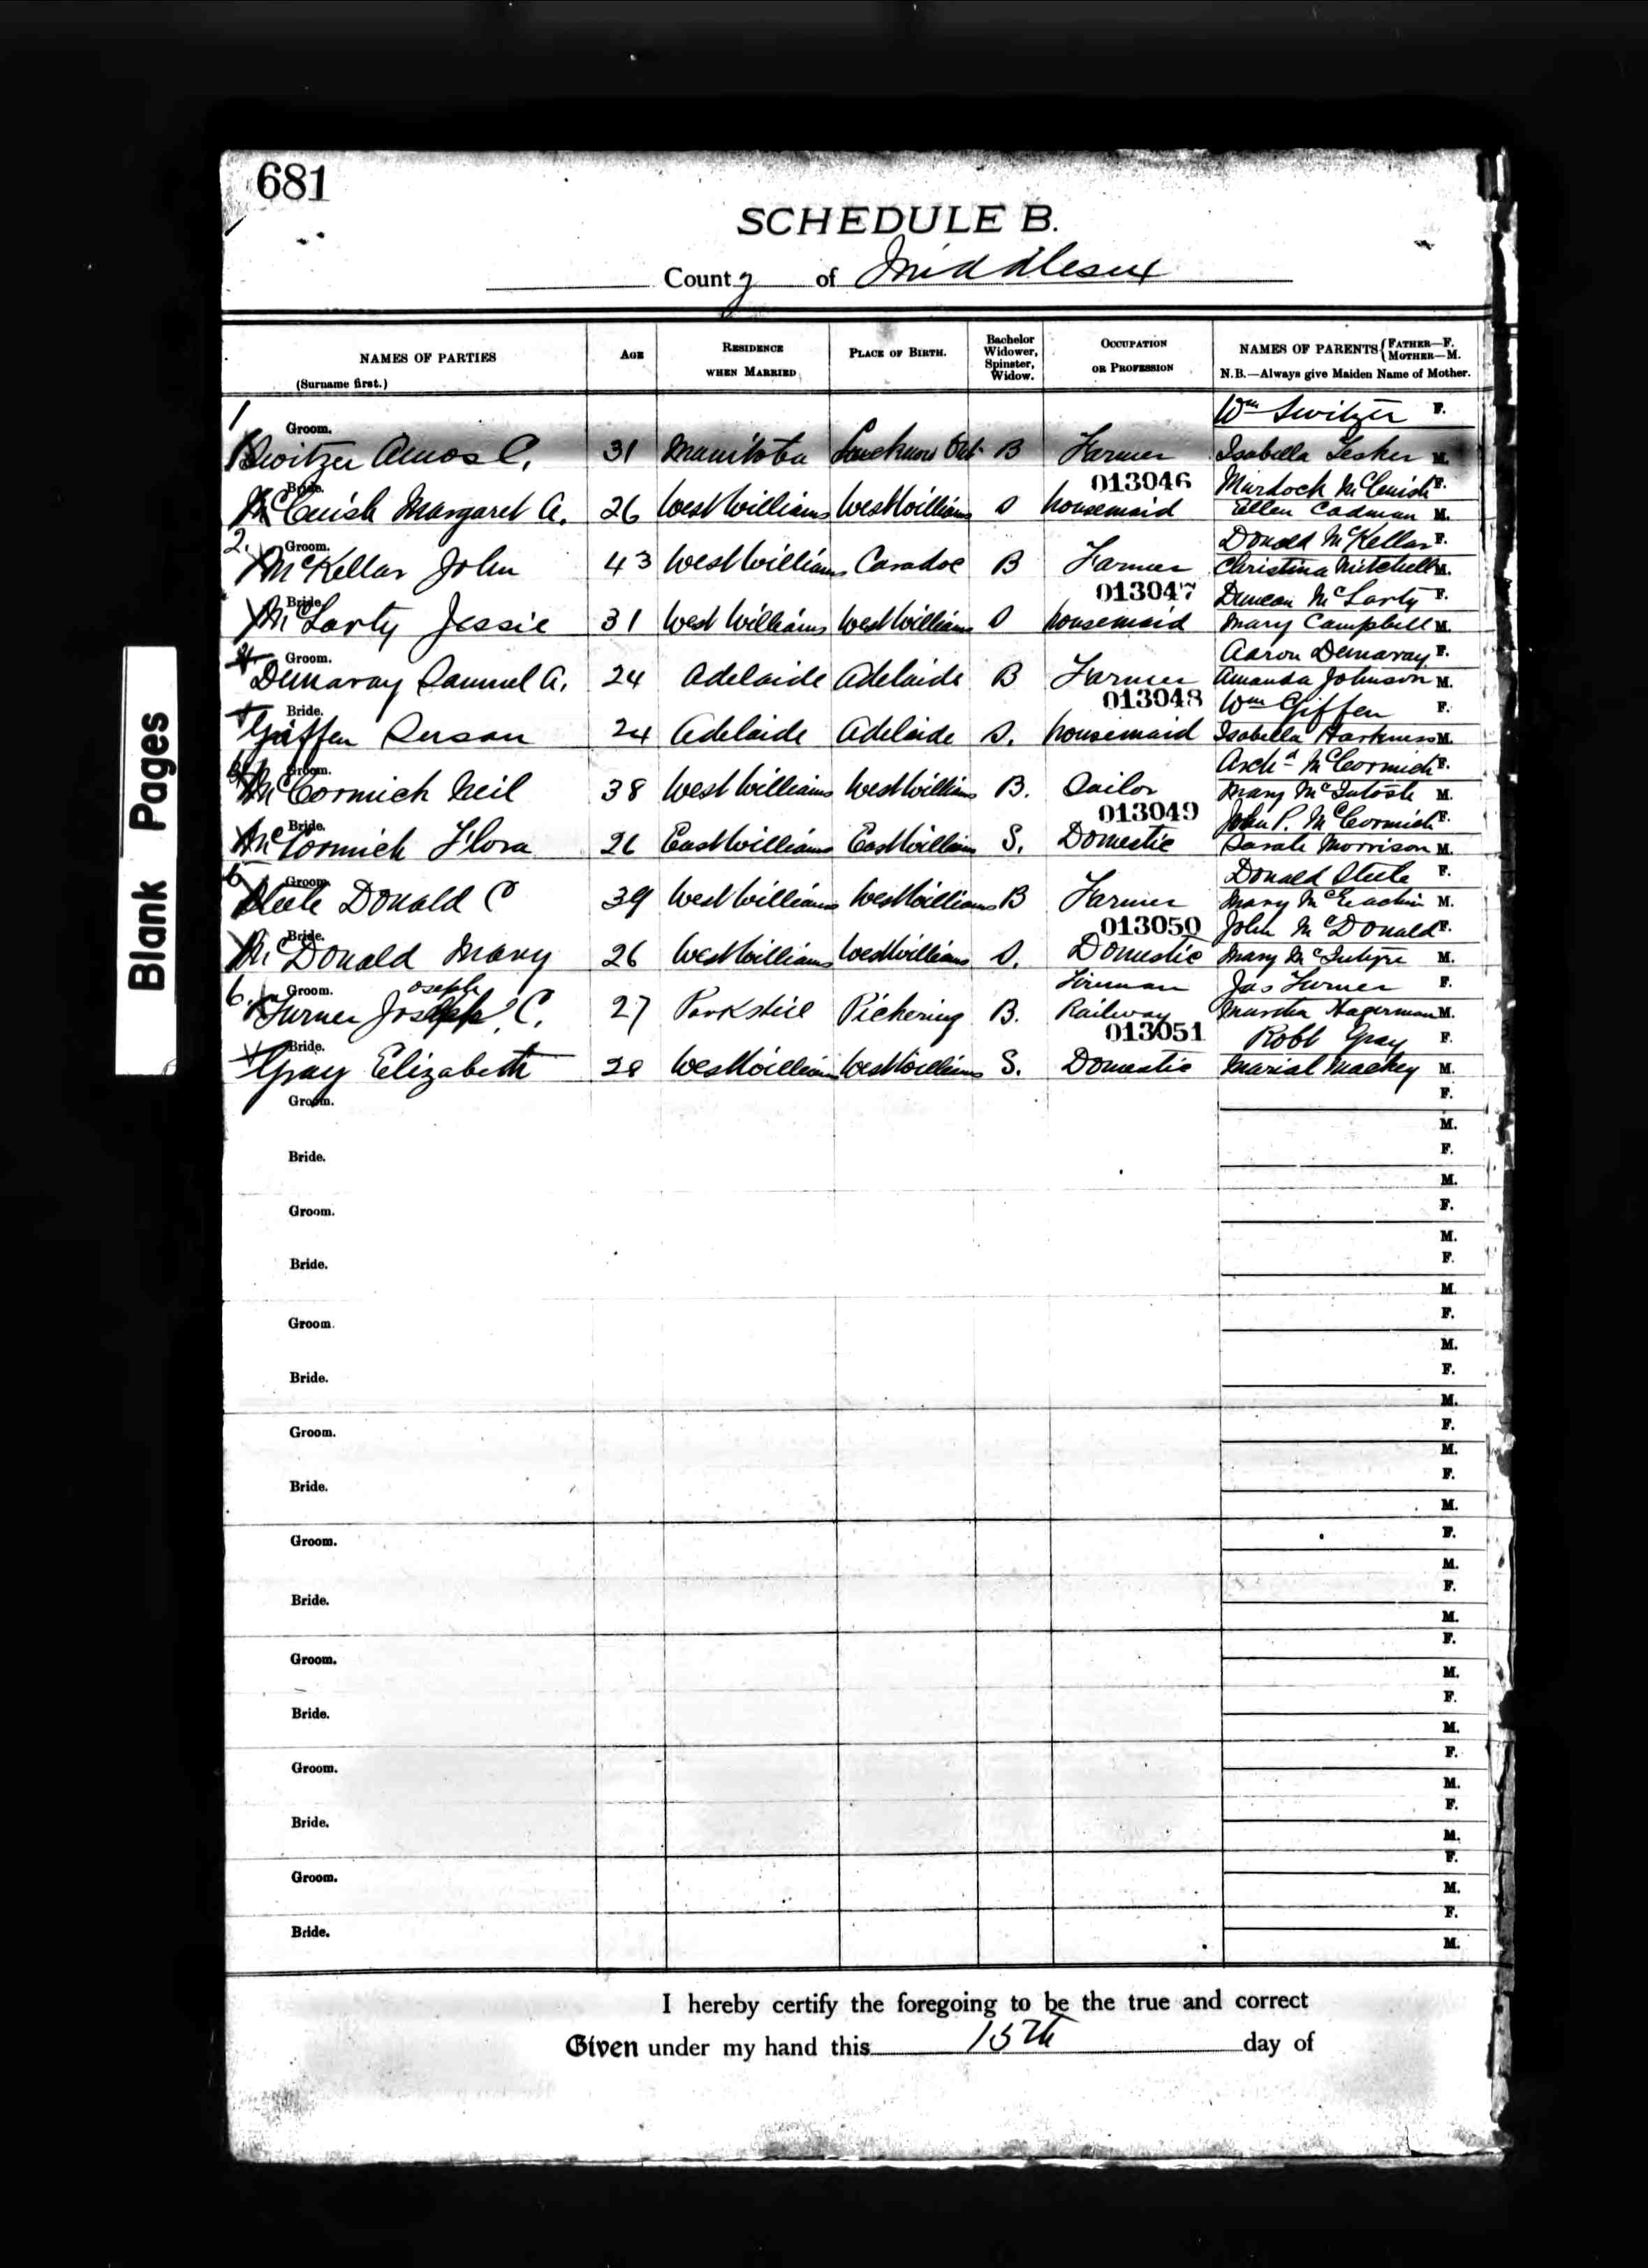 681
SCHEDULE B.
County of Middlesex
NAMES OF PARTIES
(Surname first.)
AGE
RESIDENCE
WHEN MARRIED
PLACE OF BIRTH.
Bachelor
Widower,
Spinster,
Widow.
OCCUPATION
OR PROFESSION
NAMES OF PARENTS { FATHER—F.
MOTHER—M.
N.B.—Always give Maiden Name of Mother.
1
Groom.
Wm Switzer F.
Switzer Amos C. 31 Manitoba Lucknow Ont B Farmer Isabella Lesker M.
013046
Bride.
Murdock McCuish F.
McCuish Margaret A. 26 West Williams West Williams S housemaid Ellen Cadman M.
2.
Groom.
Donald McKellar F.
McKellar John 43 West Williams Caradoc B Farmer Christina Mitchell M.
013047
Bride.
Duncan McLarty F.
McLarty Jessie 31 West Williams West Williams S housemaid Mary Campbell M.
Groom.
Aaron Demaray F.
Demaray Samuel A. 24 Adelaide Adelaide B Farmer Amanda Johnson M.
013048
Bride.
Wm Giffen F.
Giffen Susan 24 Adelaide Adelaide S. housemaid Isabella Harkness M.
Groom.
Archd McCormick F.
McCormick Neil 38 West Williams West Williams B. Sailor Mary McIntosh M.
013049
Bride.
John P. McCormick F.
McCormick Flora 26 East Williams East Williams S. Domestic Sarah Morrison M.
5
Groom
Donald Steele F.
Steele Donald C 39 West Williams West Williams B Farmer Mary McEachin M.
013050
Bride.
John McDonald F.
McDonald Mary 26 West Williams West Williams S. Domestic Mary McIntyre M.
6.
Groom.
oseph
Fireman Jas Turner F.
Turner Joseph C. 27 Parkhill Pickering B. Railway Hagerman M.
013051
Bride.
Robt Gray F.
Gray Elizabeth 28 West Williams West Williams S. Domestic Mackey M.
Groom. F.
M.
Bride. F.
M.
Groom. F.
M.
Bride. F.
M.
Groom. F.
M.
Bride. F.
M.
Groom. F.
M.
Bride. F.
M.
Groom. F.
M.
Bride. F.
M.
Groom. F.
M.
Bride. F.
M.
Groom. F.
M.
Bride. F.
M.
Groom. F.
M.
Bride. F.
M.
I hereby certify the foregoing to be the true and correct
Given under my hand this 15th day of
Blank Pages